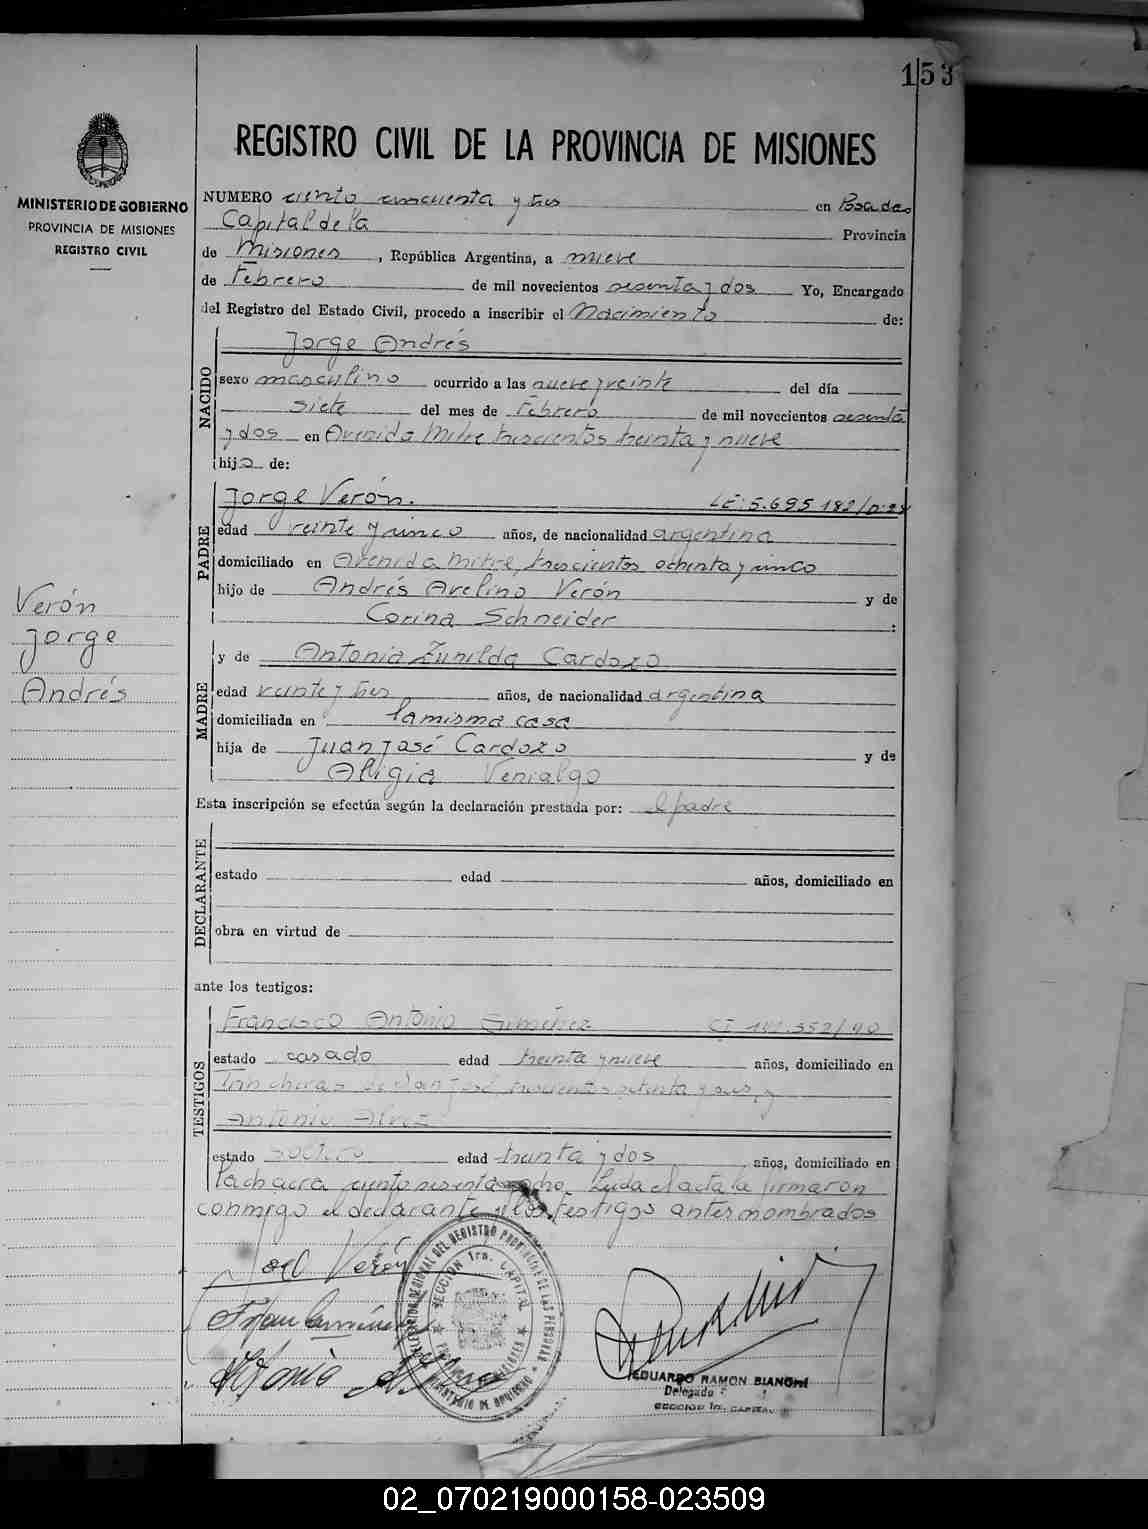 153
REGISTRO CIVIL DE LA PROVINCIA DE MISIONES
MINISTERIO DE GOBIERNO
PROVINCIA DE MISIONES
REGISTRO CIVIL
NUMERO ciento cincuenta y tres en Posadas
Capital de la Provincia
de Misiones, República Argentina, a nueve
de Febrero de mil novecientos sesenta y dos Yo, Encargado
del Registro del Estado Civil, procedo a inscribir el Nacimiento de:
NACIDO
Jorge Andrés
sexo masculino ocurrido a las nueve y veinte del día
siete del mes de Febrero de mil novecientos sesenta
y dos en Avenida Mitre trescientos treinta y nueve
hijo de:
PADRE
Jorge Verón. LE: 5.695.182/D:
edad veinte y cinco años, de nacionalidad argentina
domiciliado en Avenida Mitre, trescientos ochenta y cinco
hijo de Andrés Avelino Verón y de
Corina Schneider :
Verón
Jorge
Andrés
MADRE
y de Antonia Zunilda Cardozo
edad veinte y tres años, de nacionalidad argentina
domiciliada en la misma casa
hija de Juan José Cardozo y de
Aligia Venialgo
Esta inscripción se efectúa según la declaración prestada por: el padre
DECLARANTE
estado edad años, domiciliado en
obra en virtud de
ante los testigos:
TESTIGOS
Francisco Antonio Gimenez CI 141.552/40
estado casado edad treinta y nueve años, domiciliado en
Trincheras de San José, trescientos setenta y seis, y
Antonio Alvez
estado soltero edad treinta y dos años, domiciliado en
la chacra ciento sesenta ocho. Leída el acta la firmaron
conmigo el declarante y los testigos antes nombrados
Verón
Antonio
SECCION 1ra. CAPITAL
EDUARDO RAMON BIANCHI
Delegado
SECCION 1ra. CAPITAL
02_070219000158-023509